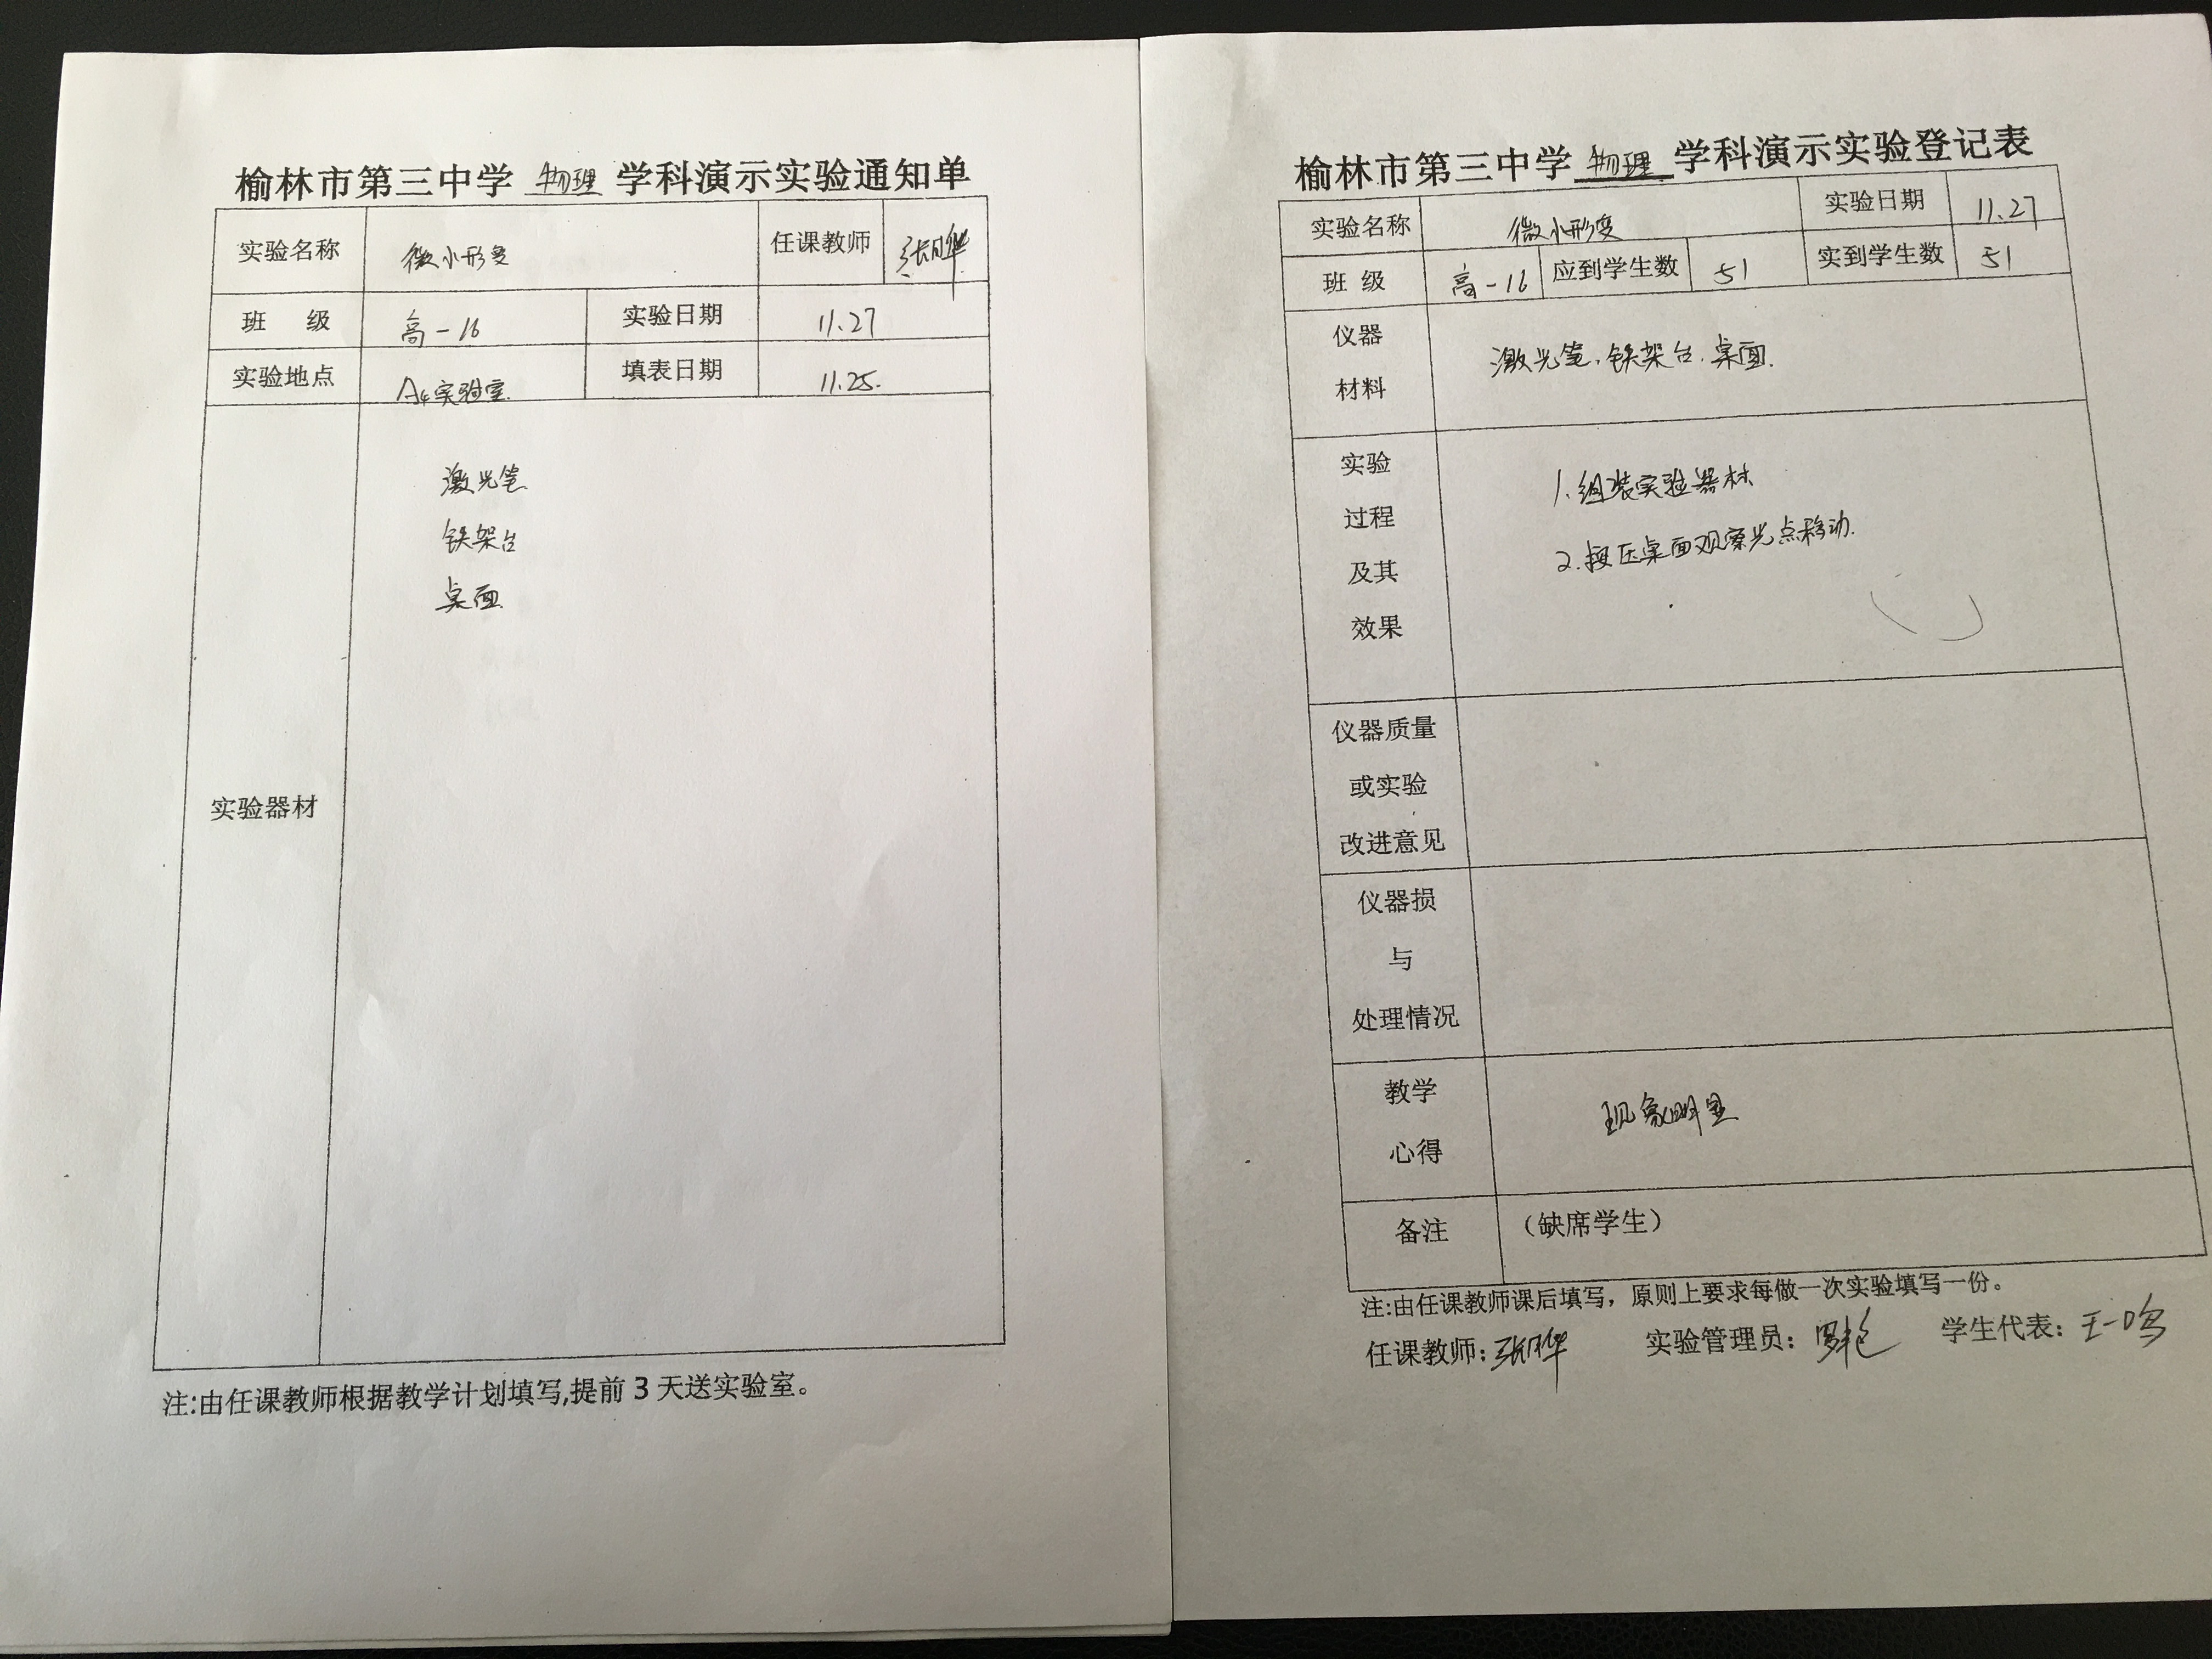 榆林市第三中学 物理 学科演示实验通知单
实验名称 微小形变 任课教师 张晔
班 级 高一16 实验日期 11.27
实验地点 A4实验室. 填表日期 11.25.
实验器材
激光笔
铁架台
桌面
注:由任课教师根据教学计划填写,提前3天送实验室。
榆林市第三中学 物理 学科演示实验登记表
实验名称 微小形变 实验日期 11.27
班 级 高一16 应到学生数 51 实到学生数 51
仪器
材料
激光笔、铁架台、桌面.
实验
过程
及其
效果
1.组装实验器材
2.按压桌面观察光点移动.
仪器质量
或实验
改进意见
仪器损
与
处理情况
教学
心得
现象明显
备注 (缺席学生)
注:由任课教师课后填写，原则上要求每做一次实验填写一份。
任课教师: 张晔 实验管理员: 罗艳 学生代表: 王一鸣